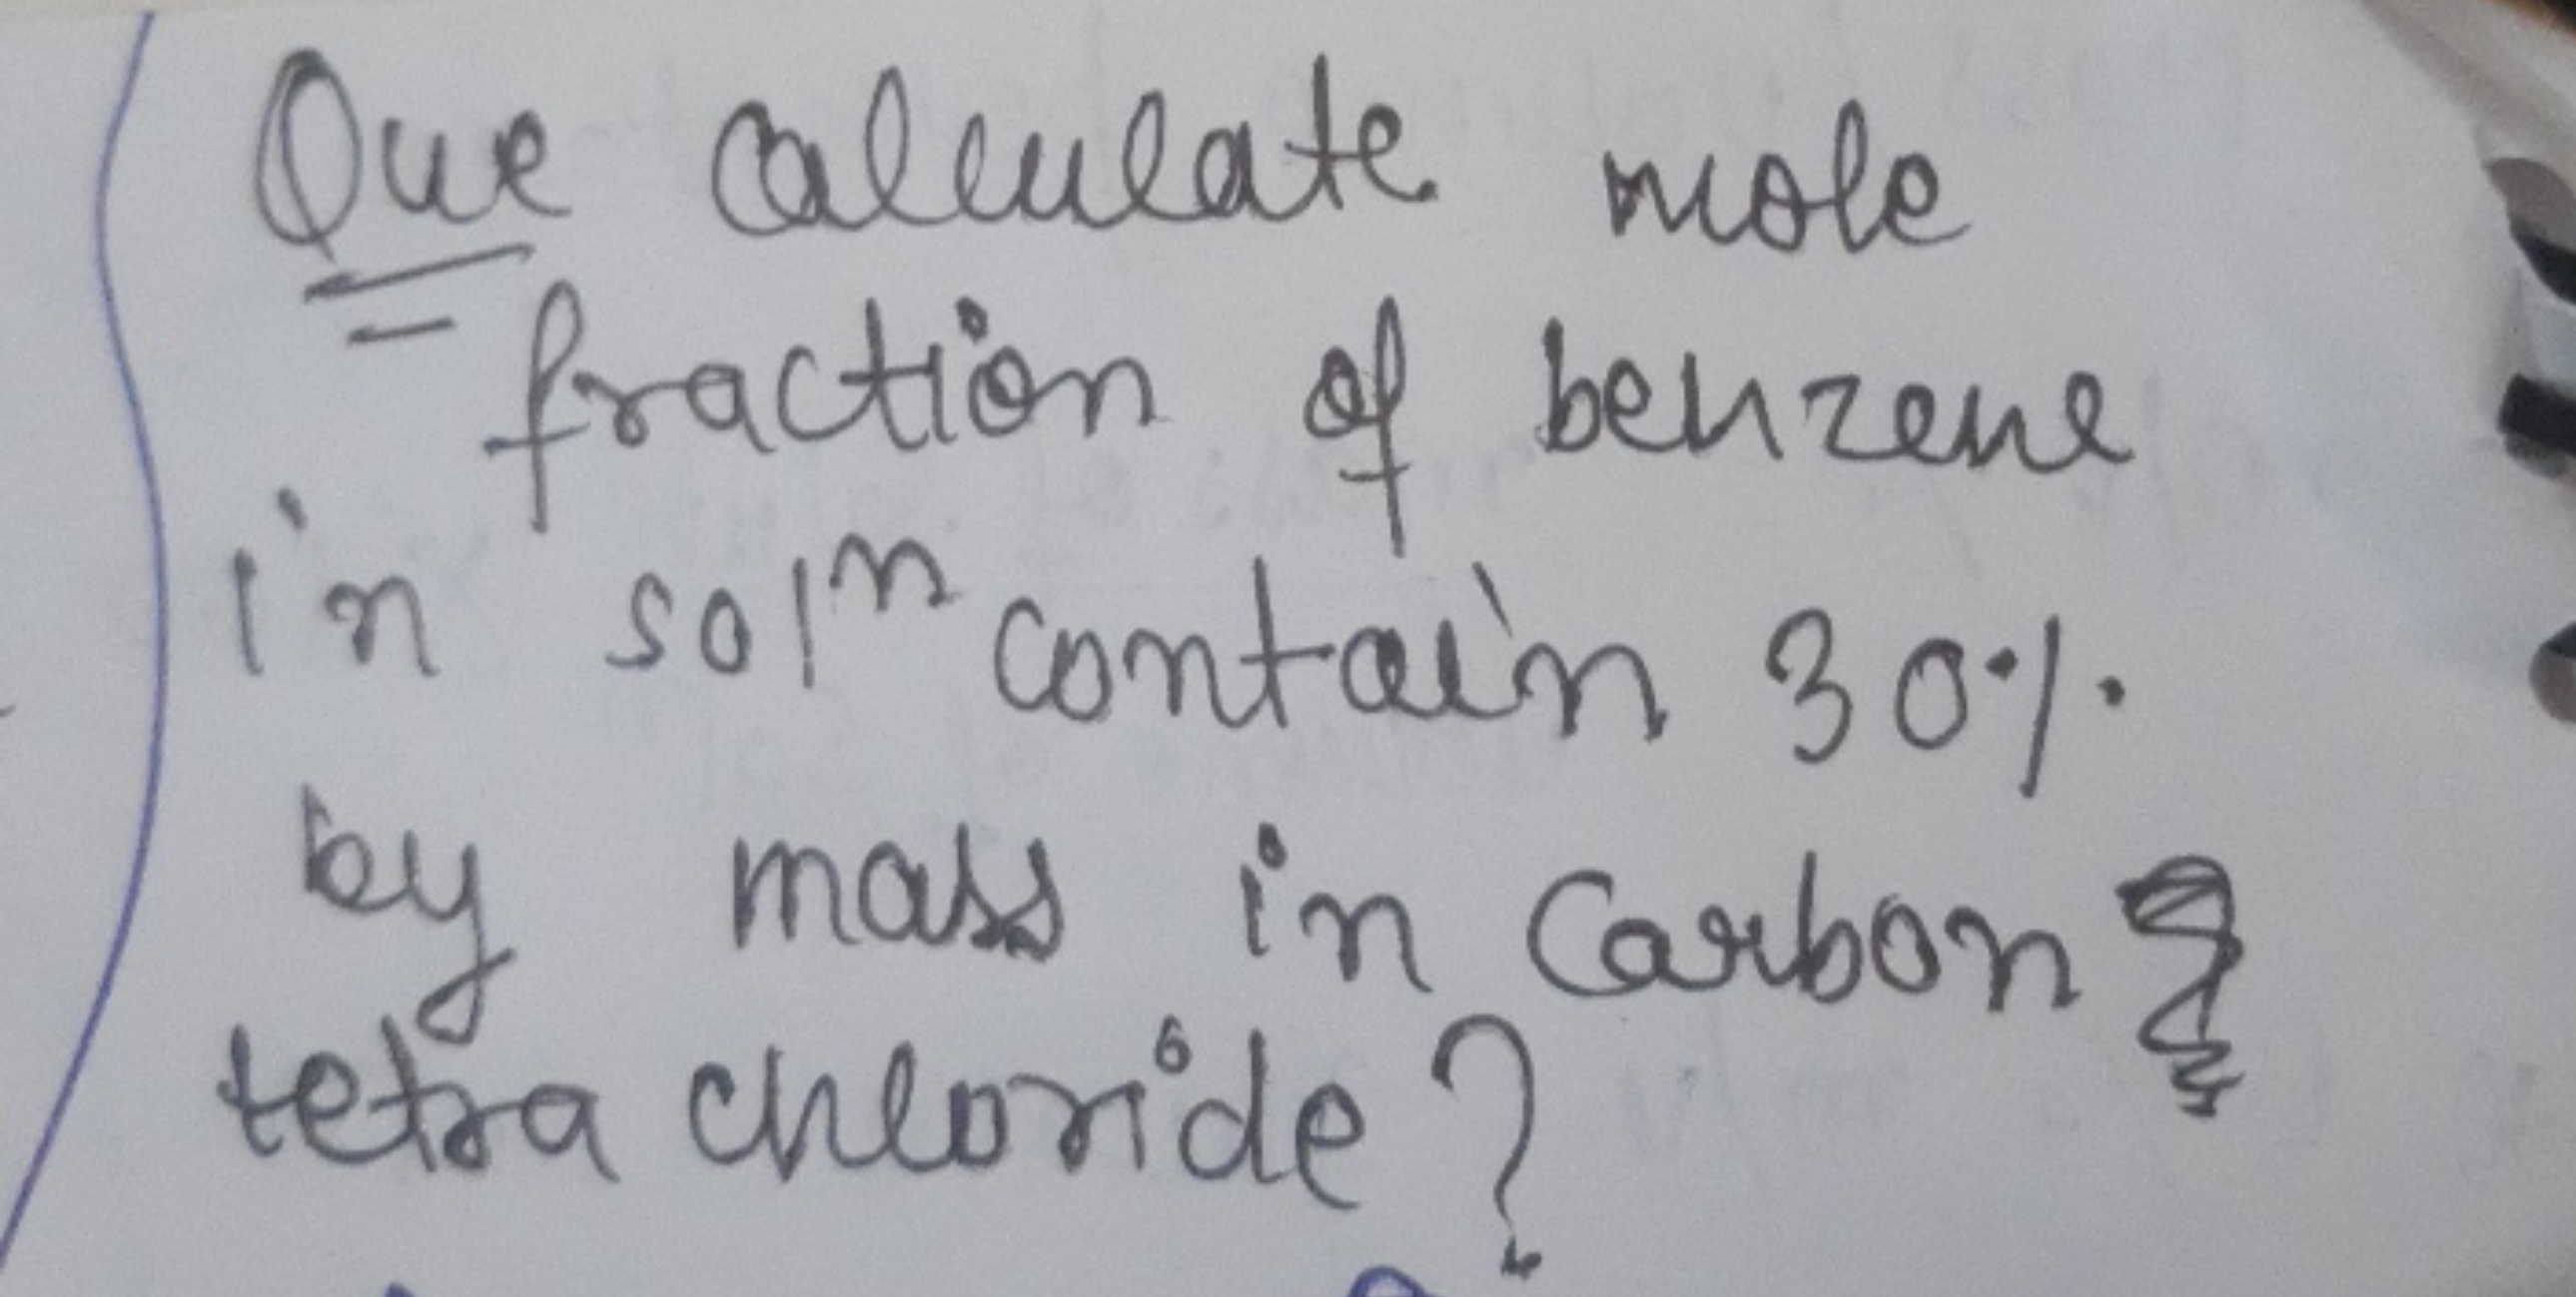 Que calculate mole
fraction of benzene
in solⁿ contain 30%
by mass in Carbon
tetra chloride?